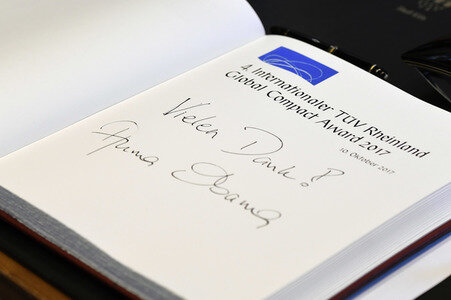 4. Internationaler TÜV Rheinland
Global Compact Award 2017
10. Oktober 2017
Vielen Dank!
Auma Obama